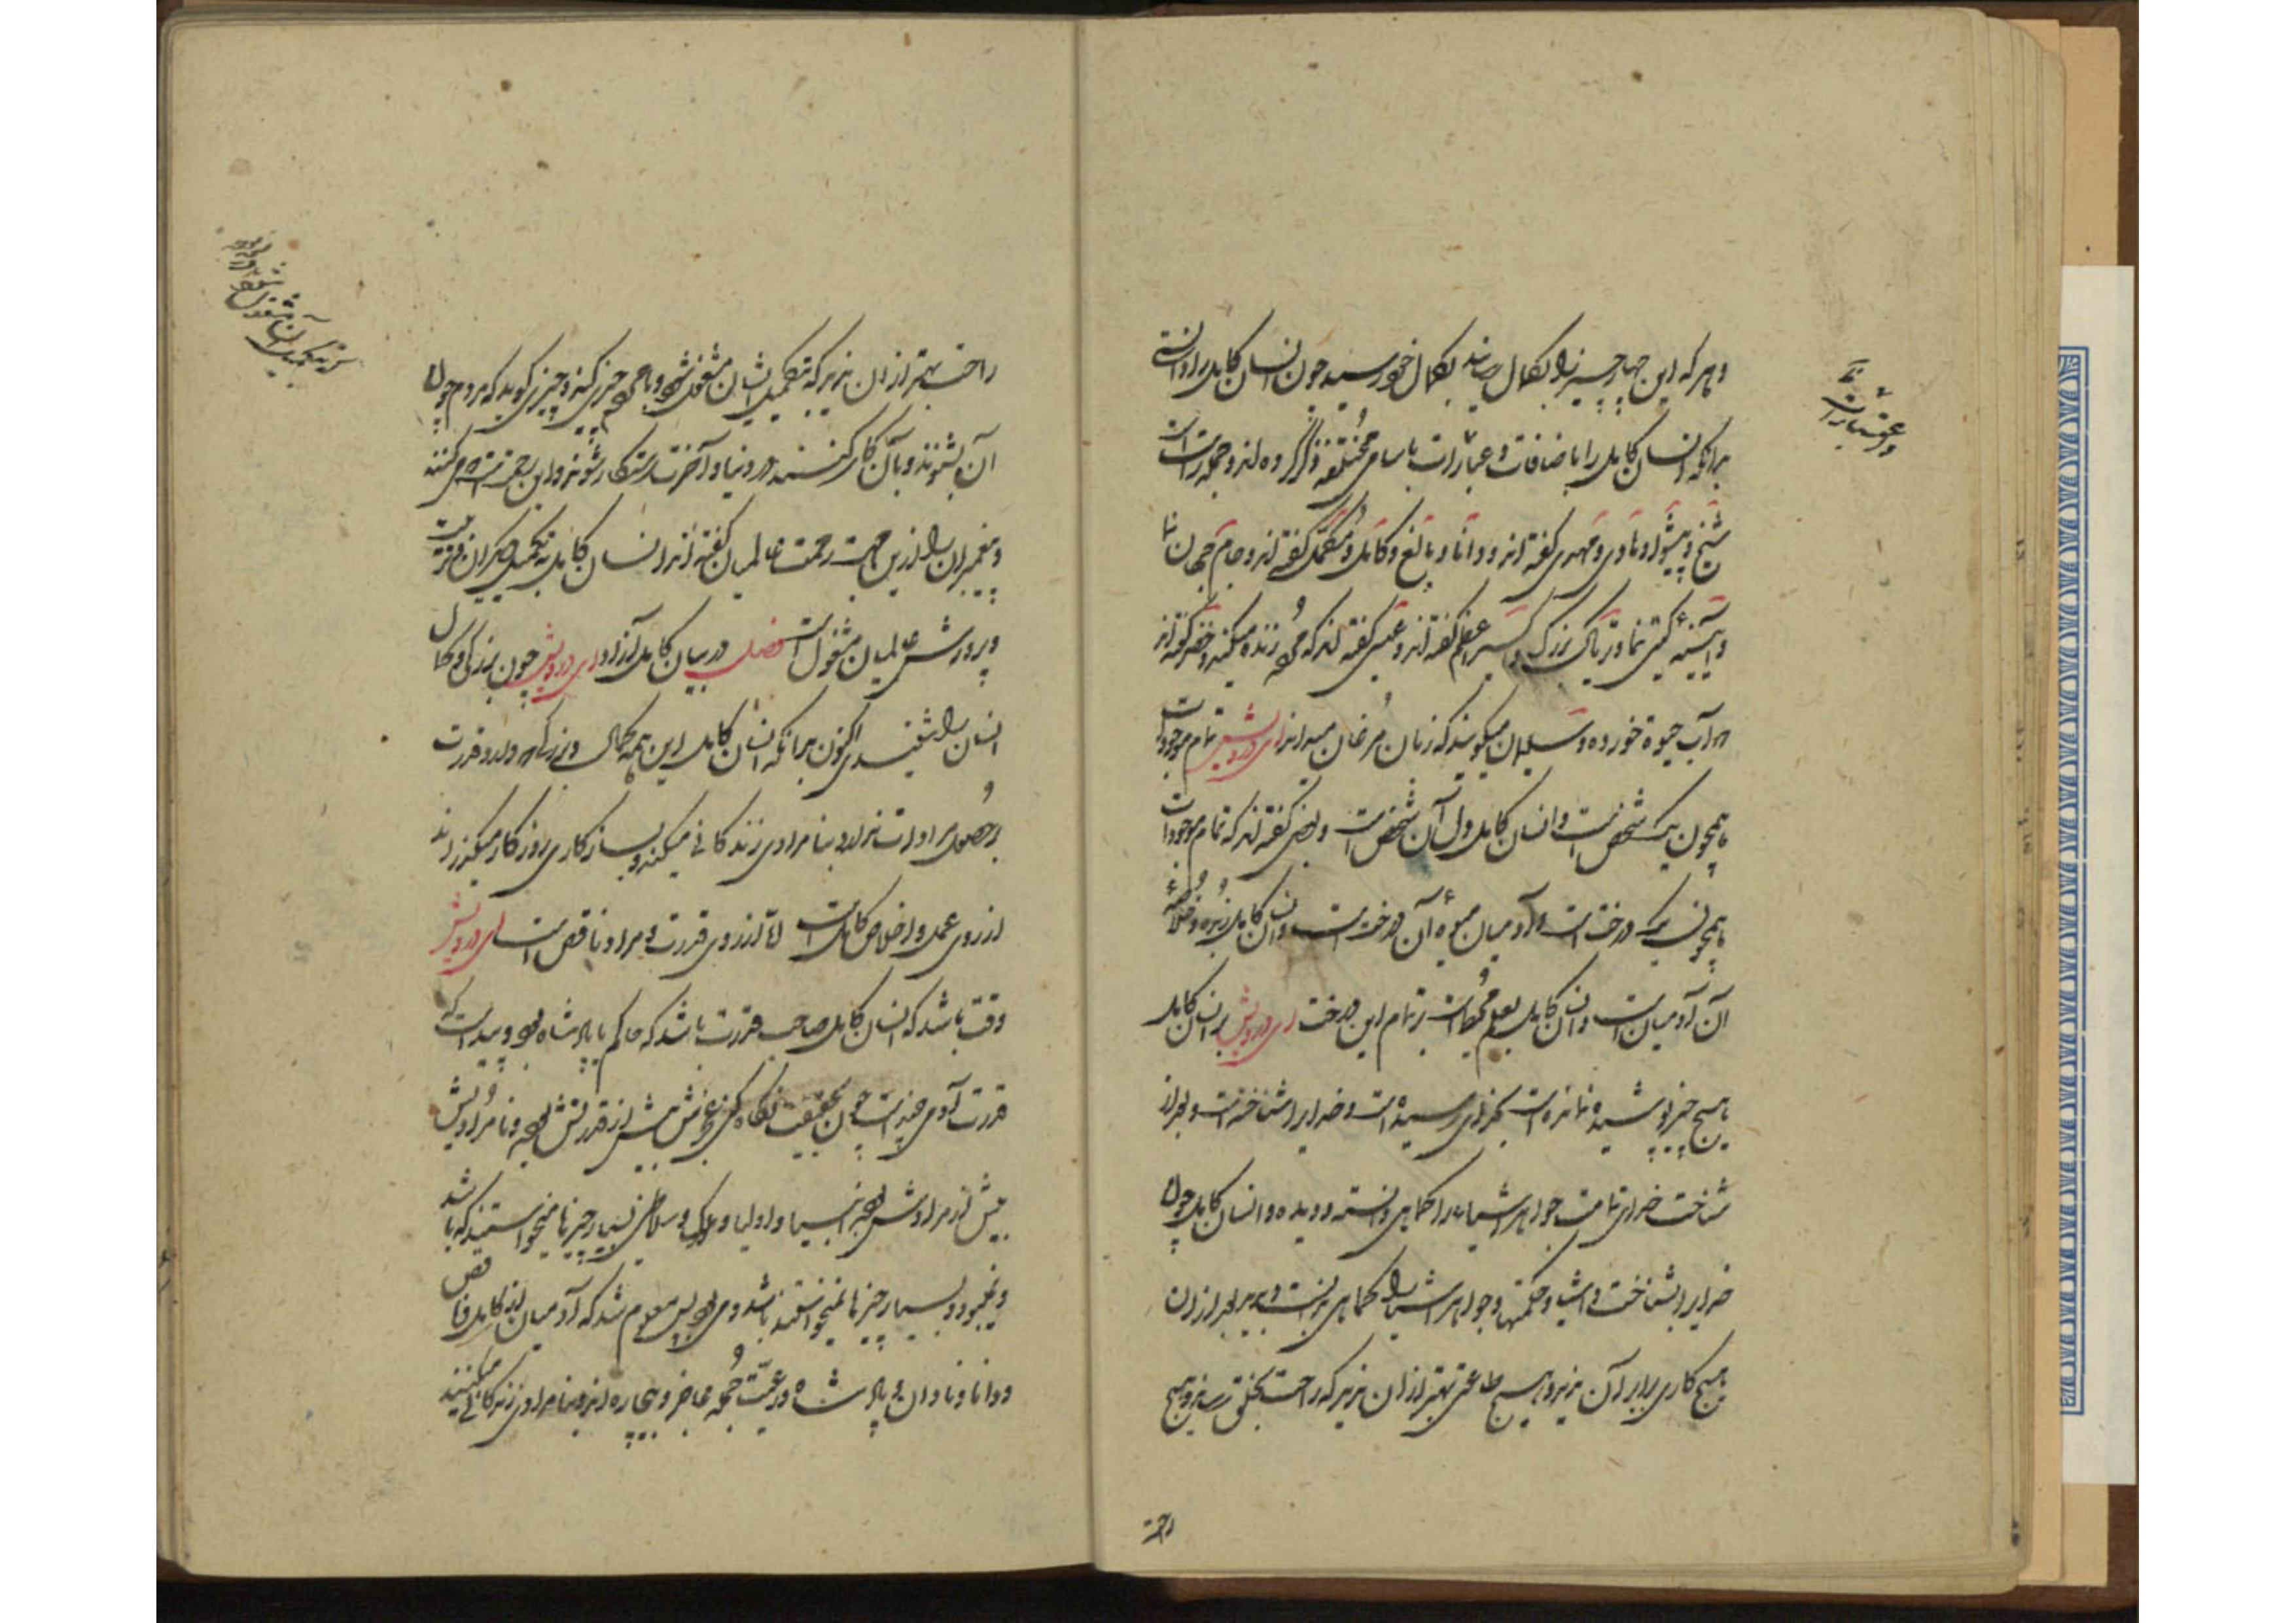 و هر که این چهار چیز را بکمال رسانید بکمال خود رسید چون انسان کامل را دانستی
بدانکه انسان کامل را باضافات و عبارات باسامی مختلفه ذکر کرده اند و جمله راست است
شیخ و پیشوا و هادی و مهدی گفته اند و دانا و بالغ و کامل و مکمل گفته اند و جام جهان نما
و آیینه گیتی نما و تریاک بزرگ و اکسیر اعظم گفته اند و عیسی گفته اند که مرده زنده میکند و خضر گفته اند
که آب حیوة خورده و سلیمان میگویند که زبان مرغان میداند ای درویش تمام موجودات
همچون یک شخص است و انسان کامل دل آن شخص است و بعضی گفته اند که تمام موجودات
همچون یک درخت است و آدمیان میوه آن درخت است و انسان کامل زبده و خلاصه
آن آدمیان است و انسان کامل بعلم محیط است بر تمام این درخت ای درویش بر انسان کامل
هیچ چیز پوشیده نمانده است بخدای رسیده است و خدای را شناخته است و بعد از
شناخت خدای تمامت جواهر اشیاء را کماهی دانسته و دیده و انسان کامل چون
خدای را بشناخت و اشیا و حکمتها و جواهر اشیا را کماهی بدانست و بدید بعد از آن
هیچ کاری برابر آن ندید و هیچ طاعتی بهتر از آن ندید که راحت بخلق رساند و هیچ
راحت
و عبارات
راحت بهتر از آن ندید که بتکمیل ایشان مشغول شود و با مردم چیزی کند و چیزی گوید که مردم چون
آن بشنوند و بآن کار کنند در دنیا و آخرت رستگار شوند و این
و پیغمبران را ازین جهت رحمت عالمیان گفته اند انسان کامل بتکمیل دیگران و تربیت
و پرورش عالمیان مشغول است فصل در بیان کامل آزاد ای درویش چون بزرگی و کمال
انسان را شنیدی اکنون بدانکه انسان کامل این همه کمال و بزرگی که دارد قدرت
بر حصول مرادات ندارد و بنامرادی زندگانی میکند و بسازگاری روزگار میگذراند
از روی عمل و اخلاص کامل است اما از روی قدرت و مراد ناقص است ای درویش
وقت باشد که انسان کامل صاحب قدرت باشد که حاکم یا پادشاه بود و پیداست که
قدرت آدمی چند است چون بحقیقت نگاه کنی عجزش بیش از قدرتش بود و نامرادیش
بیش از مرادش بود انبیا و اولیا و ملوک و سلاطین بسیار چیزها میخواستند که باشد
و نمیبود و بسیار چیزها نمیخواستند باشد و می بود پس معلوم شد که آدمیان از کامل و ناقص
و دانا و نادان و پادشاه و رعیت جمله عاجز و بیچاره اند و بنامرادی زندگانی میکنند
که بتکمیل ایشان مشغول شود